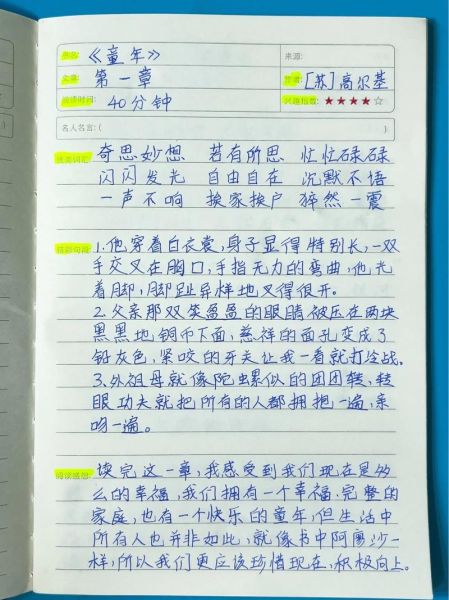 书名: 《童年》 来源:
文章: 第一章 作者: [苏]高尔基
阅读时间: 40分钟 兴趣指数: ★★★★☆
名人名言: ( )
优美词汇: 奇思妙想 若有所思 忙忙碌碌
闪闪发光 自由自在 沉默不语
一声不响 挨家挨户 猝然一震
精彩句段: 1.他,穿着白衣裳,身子显得特别长,一双
手交叉在胸口,手指无力的弯曲,他光
着脚,脚趾异样地叉得很开。
2.父亲那双笑眯眯的眼睛被压在两块
黑黑地铜币下面,慈祥的面孔变成了
铅灰色,紧咬的牙关让我一看就打冷战。
3.外祖母就像陀螺似的团团转,转
眼功夫就把所有的人都拥抱一遍,亲
吻一遍。
阅读感想: 读完这一章,我感受到我们现在是多
么的幸福,我们拥有一个幸福.完整的
家庭,也有一个快乐的童年,但生活中
所有人也并非如此,就像书中阿廖沙一
样,所以我们更应该珍惜现在,积极向上。